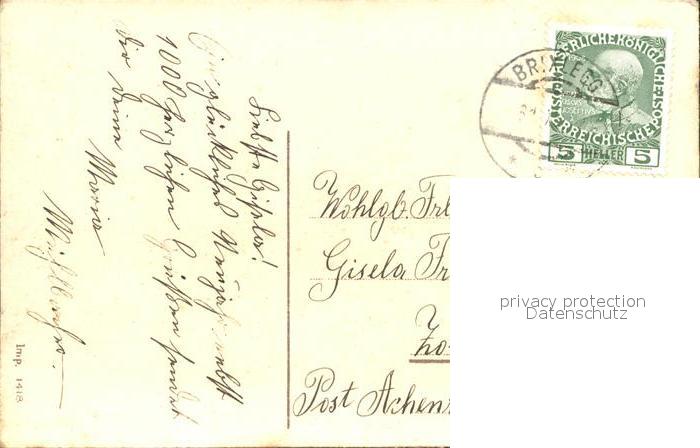 Liebste Gisela!
Ein glückliches Neujahr nebst
1000 herzlichen Grüßen sendet
dir deine Maria
Imp. 1418
KAISERLICHE KÖNIGLICHE
ÖSTERREICHISCHE
5 HELLER 5
BRIXLEGG
Wohlgb. Frl
Gisela Fr
Post Achen
privacy protection
Datenschutz